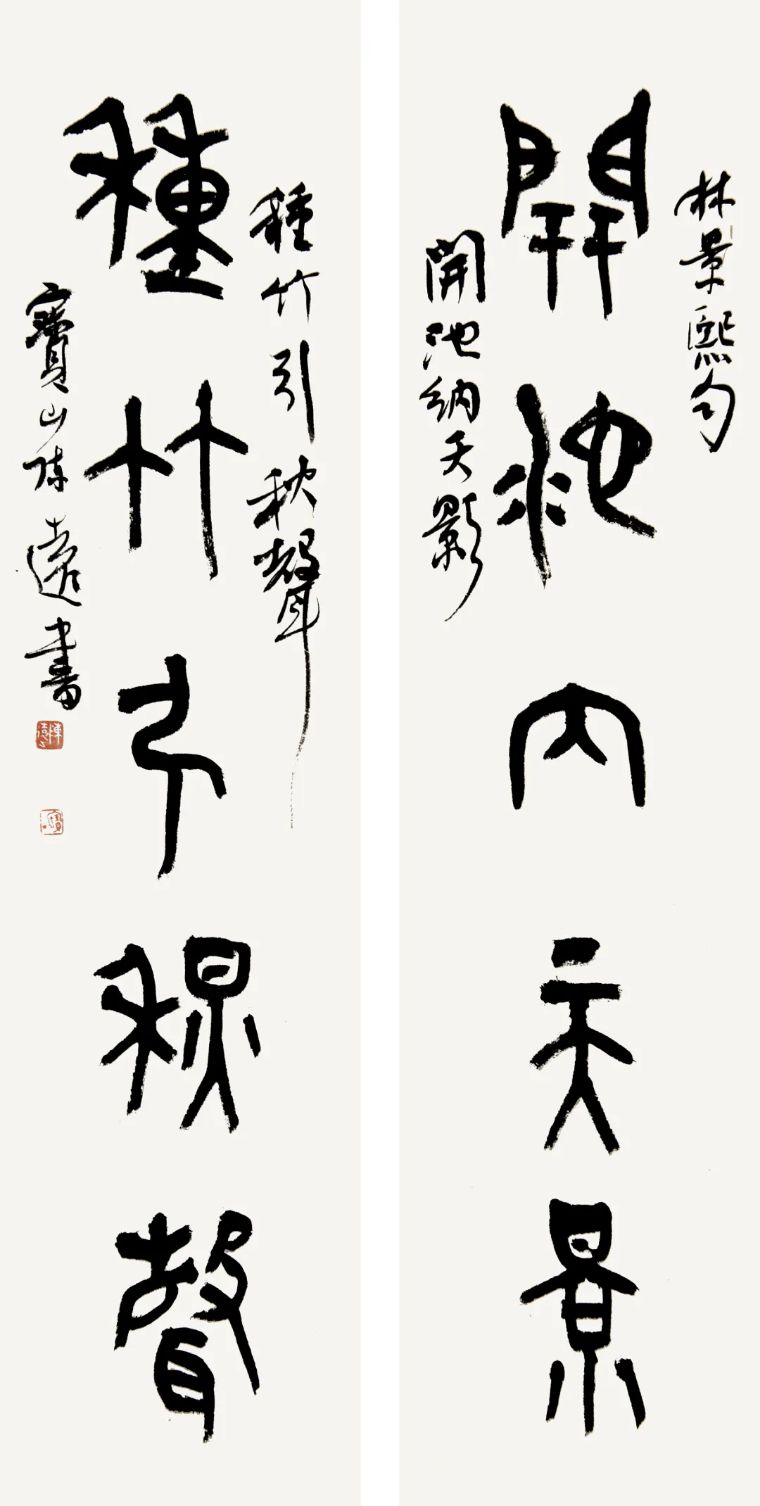 林景熙句
開池内天景
開池納天影
種竹引秋聲
種竹引秋聲
寶山陳遠書